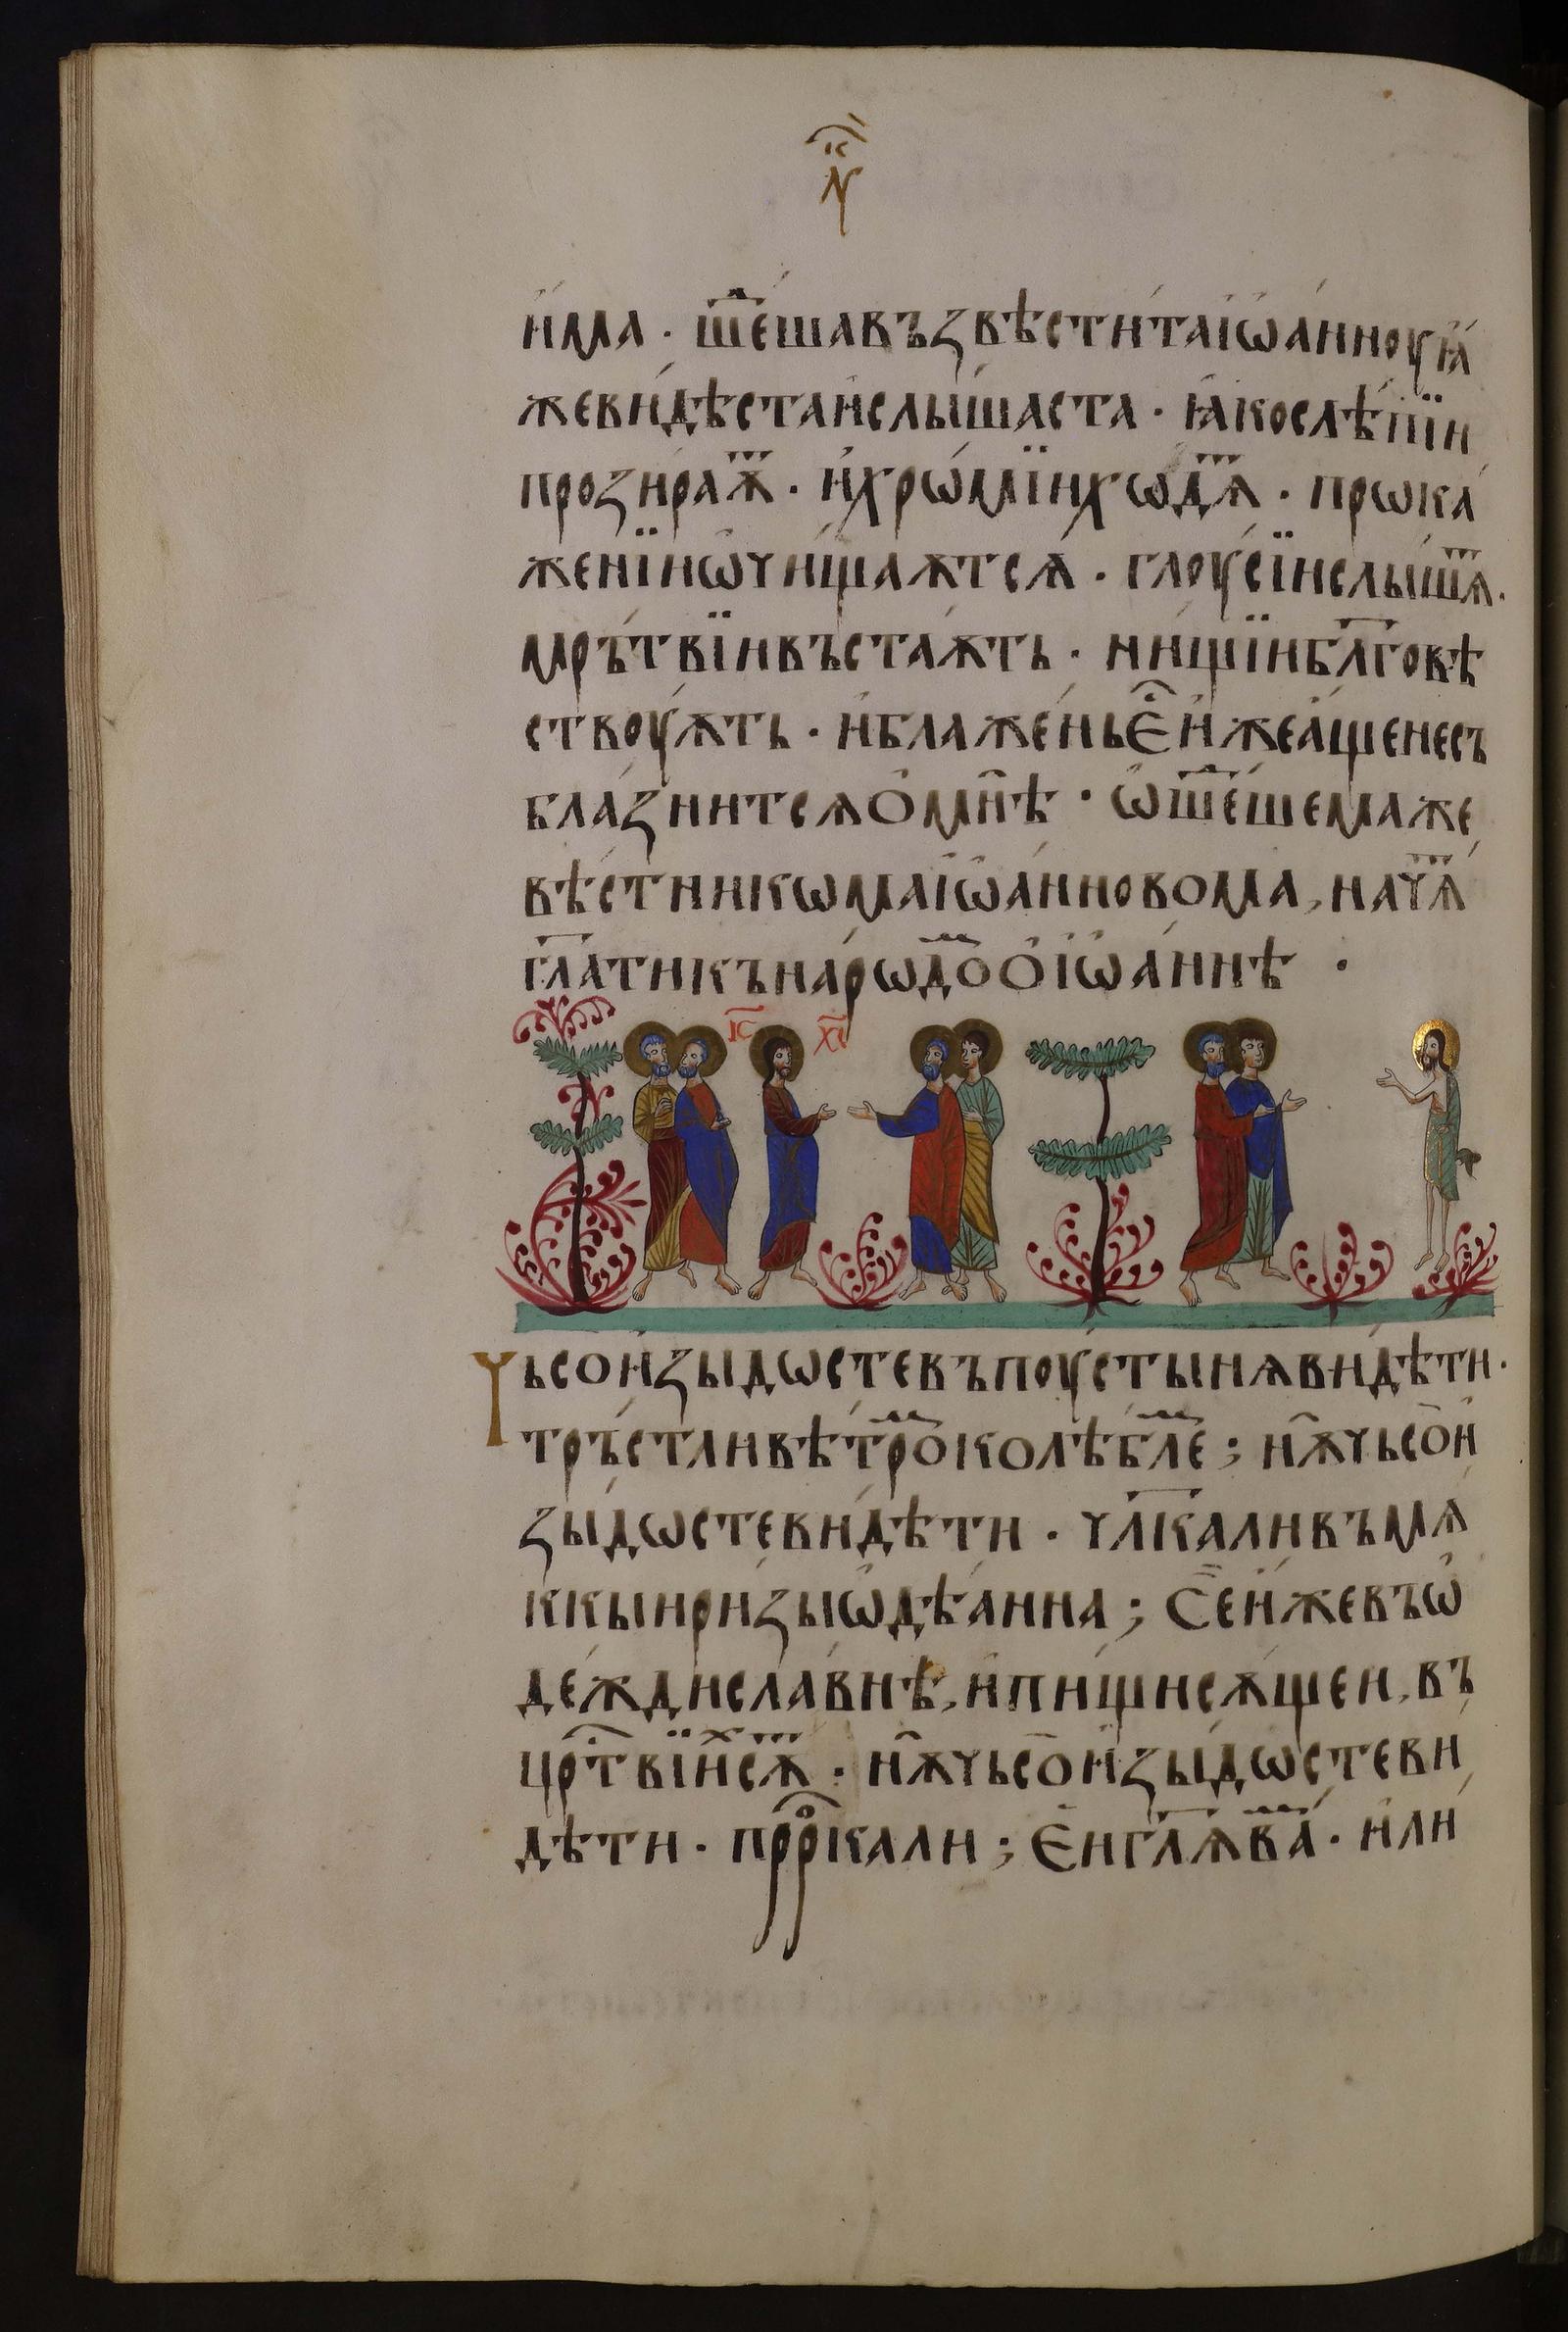 н҃
и҆́ма · ше́ша въꙁвѣсти́та і҆ѡ҆а́нноу ꙗ҆́
же ви́дѣста и҆ слы́шаста · ꙗ҆́ко слѣпїи
проꙁи́раѫⷮ · и҆ хрѡ́мїи хѡ́дѧⷮ · прѡка́
женїи ѡ҆чи́щаѫтсѧ · глоу́сїи слы́шѧⷮ ·
мрът́вїи въстаѫ́ть · ни́щїи бл҃говѣ
ствоу́ѫть · и҆ блаже́нь є҆̑ и҆́же а҆́ще не съ
бла́ꙁнитсѧ ѻ҆ мнѣ̑ · ѡ҆ше́шема же
вѣ́стникѡма і҆ѡ҆а́нновома, начѧ́ⷮ
гл҃ати къ на́рѡдоⷨ ѻ҆ і҆ѡ҆а́ннѣ ·
І҃С Х҃С
Чьсо и҆ꙁы́дѡсте въ поу́стынѧ ви́дѣти ·
тръ́стли вѣ́троⷨ колѣ́блеⷨ ; нѫ̑ чьсо и҆
ꙁы́дѡсте ви́дѣти · чл҃ка ли въ мѧ
ккы ри́ꙁы ѡ҆дѣа́нна ; Се и҆̀же въ ѡ҆
де́жди сла́внѣ, и҆ пи́щи сѫ́щеи, въ
цр҃твїи сѫⷮ · нѫ̑ чьсо и҆ꙁы́дѡсте ви
дѣти · прⷪ҇рка ли ; Єи гл҃ѧ ваⷨ · и҆ ли́